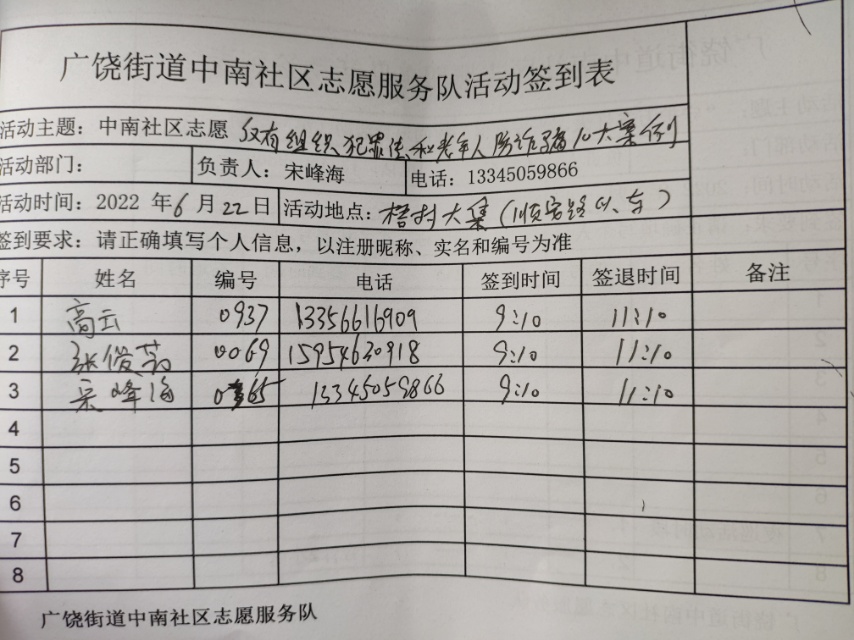 广饶街道中南社区志愿服务队活动签到表
活动主题：中南社区志愿 反有组织犯罪法和老年人防诈骗八大案例
活动部门： 负责人：宋峰海 电话：13345059866
活动时间：2022 年6月22日 活动地点：梧村大集（顺安路以东）
签到要求：请正确填写个人信息，以注册昵称、实名和编号为准
序号 姓名 编号 电话 签到时间 签退时间 备注
1 高云 0937 13356616909 9:10 11:10
2 张俊 0069 15954630918 9:10 11:10
3 宋峰海 0365 13345059866 9:10 11:10
4
5
6
7
8
广饶街道中南社区志愿服务队